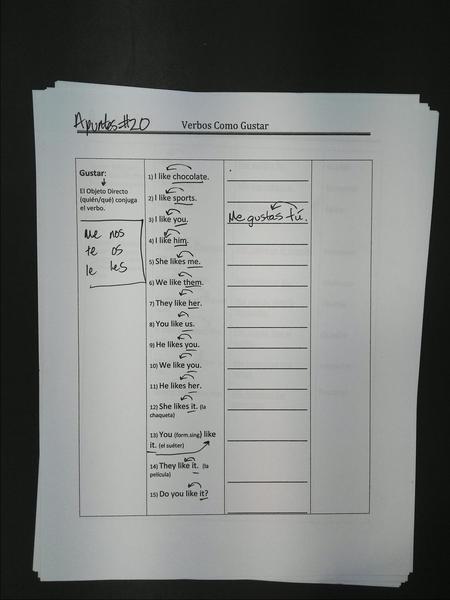 Apuntes #20
Verbos Como Gustar
Gustar:
El Objeto Directo
(quién/qué) conjuga
el verbo.
me nos
te os
le les
1) I like chocolate.
2) I like sports.
3) I like you.
Me gustas tú.
4) I like him.
5) She likes me.
6) We like them.
7) They like her.
8) You like us.
9) He likes you.
10) We like you.
11) He likes her.
12) She likes it. (la
chaqueta)
13) You (form.sing) like
it. (el suéter)
14) They like it. (la
película)
15) Do you like it?